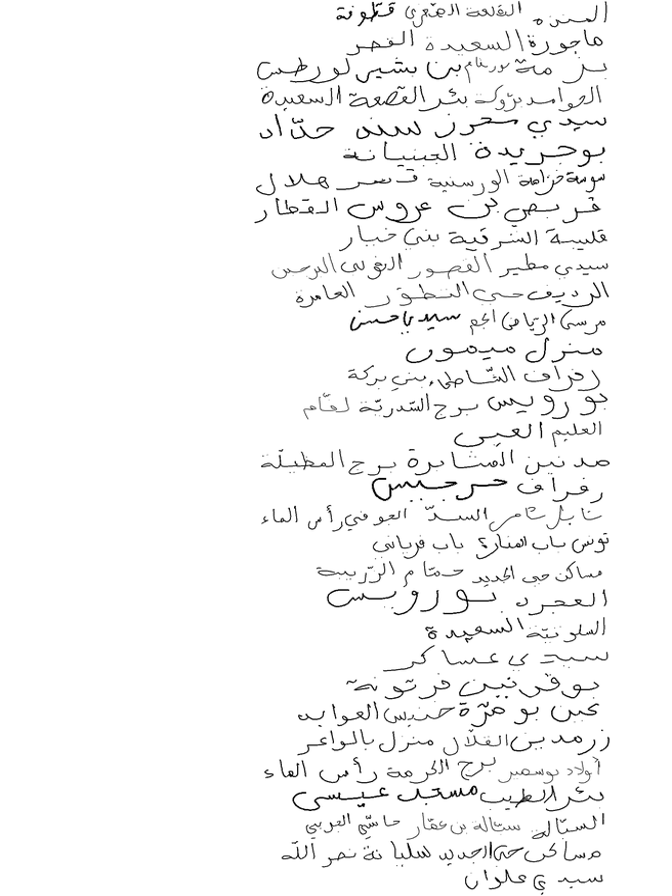 المنزه القلعة الصغرى قطونة
ماجورة السعيدة القصر
بن بشير لورطس
بروكة بئر القصعة السعيدة
سيدي محرز سند حدّاد
بوجريدة الجبنيانة
سوسة خزامة الورسنية قصر هلال
بن عروس القطار
قليبية الشرقية بني خيار
سيدي مطير القصور
الرديف حي التطوّر العامرة
مرسى الرياض الجم سيدي حسن
منزل ميمون
رفراف الشّاطئ بني بركة
بورويس برج السّدريّة
العليم
مدنين المشابرة برج المطيلّة
رفراف جرجيس
نابل السدّ الجوفي رأس الماء
تونس باب المنارة باب
مساكن حي الجديد حمّام الزّريبة
العجرد بورويس
السلونيّة السعيدة
سيدي عساكر
بوقرنين فرتونة
بومرّة خنيس العوابد
زرمدين القلال منزل
أولاد بوسمير برج الكرمة رأس الماء
بئر الطيب مستجد عيسى
الستالة ستالة بن عقار حاسّي الجربي
مساكن حي الجديد سليانة نصر الله
سيدي علوان